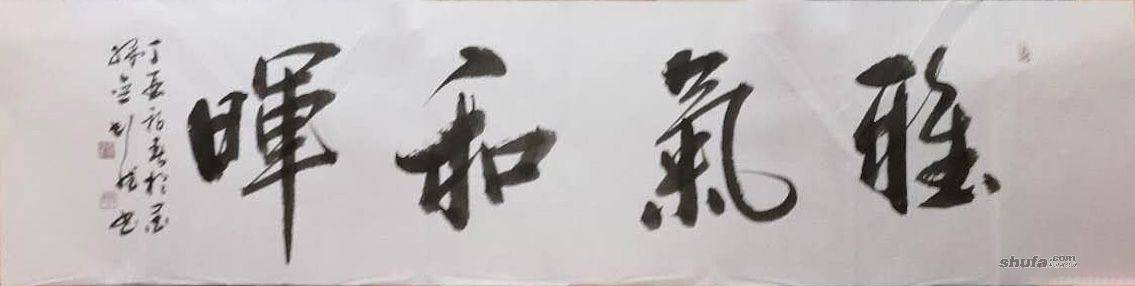 雅氣和暉
丁亥初春於墨
緣堂劉
書
shufa.com